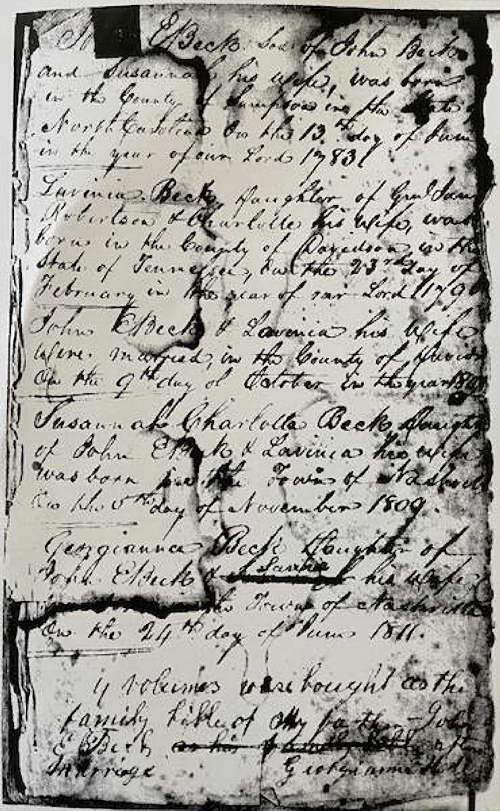 E Beck Son of John Beck
and Susannah his wife, was born
in the County of Sampson in the State
North Carolina on the 13th day of June
in the year of our Lord 1783
Lavinia Beck, Daughter of Genl Jam
Robertson & Charlotte his wife, was
born in the County of Davidson, in the
State of Tennessee, on the 23rd day of
February in the year of our Lord 179
John E Beck & Lavinia his wife
were married, in the County of
on the 9th day of October in the year
Susannah Charlotte Beck Daught
of John E Beck & Lavinia his wife
was born in the Town of Nashvill
on the 5th day of November 1809.
Georgianna Beck Daughter of
John E Beck & his wife
the Town of Nashville
On the 24th day of June 1811.
4 volumes were bought as the
family bible of my father - John
E Beck after
marriage Georgianna